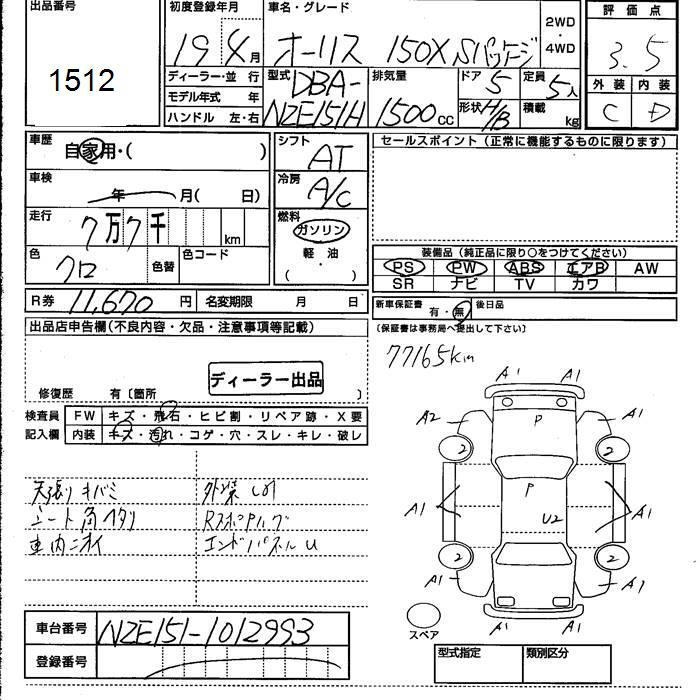 出品番号 1512
初度登録年月 19年4月
車名・グレード オーリス 150X Sパッケージ
2WD・4WD
評価点 3.5
外装 内装
C D
ディーラー・並行
モデル年式 年
ハンドル 左・右
型式 DBA-NZE151H
排気量 1500cc
ドア 5
形状 H/B
定員 5人
積載 kg
車歴 自家用・( )
車検 年 月( 日)
走行 7万7千 km
色 クロ 色替 色コード
シフト AT
冷房 A/C
燃料 ガソリン
軽・油
( )
セールスポイント(正常に機能するものに限ります)
装備品(純正品に限り○をつけてください)
PS PW ABS エアB AW
SR ナビ TV カワ
R券 11,670円 名変期限 月 日
新車保証書 有・無 後日品
(保証書は事務局へ提出して下さい)
出品店申告欄(不良内容・欠品・注意事項等記載)
ディーラー出品
修復歴 有〔箇所 〕
検査員記入欄
FW キズ・飛石・ヒビ割・リペア跡・X要
内装 キズ・汚れ・コゲ・穴・スレ・キレ・破レ
天張りキバミ
シート角ヘタリ
車内ニオイ
外装
エンドパネルU
77165km
A1 A1
A2 P A1
2 2
A1 P A1
U2
2 2
A1 A1
A1 A1
スペア
車台番号 NZE151-1012993
登録番号
型式指定 類別区分